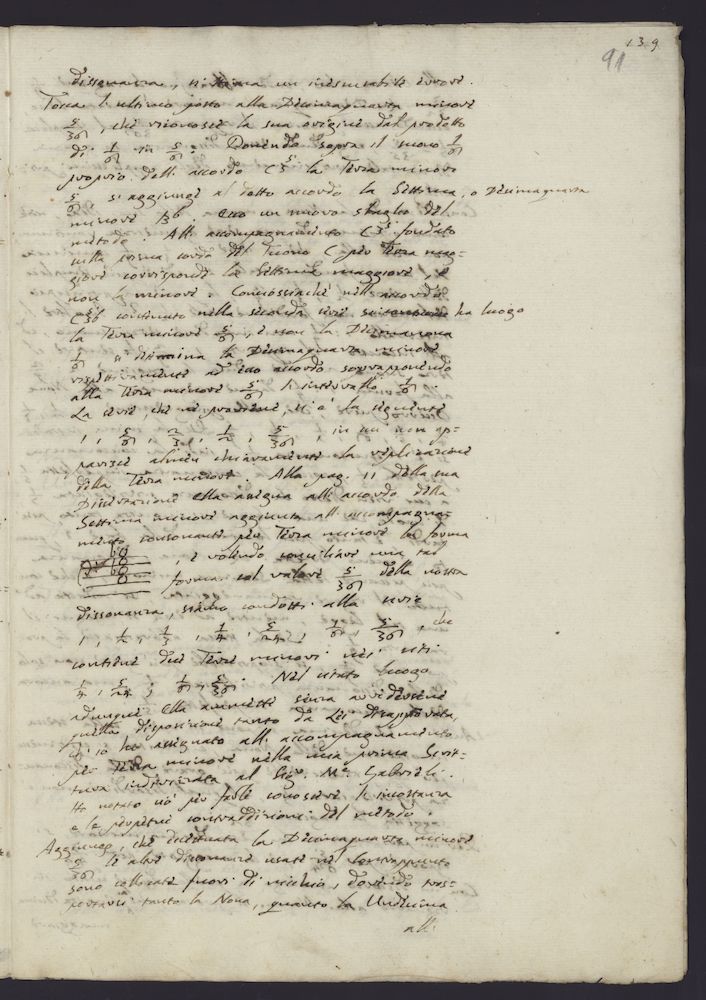 139
91
dissonanza, si stima un inescusabile errore.
Tocca l'ultimo posto alla Decimaquarta minore
5/36, che riconosce la sua origine dal prodotto
di 1/6 in 5/6. Ponendo sopra il suono 1/6
proprio dell'accordo C 3 5 la Terza minore
5/6 si aggiunge al detto accordo la Settima, o Decimaquarta
minore Bb. Ecco un nuovo sbaglio del
metodo. All'accompagnamento C 3 5 fondato
nella prima corda del Tuono C per Terza mag=
giore corrisponde la Settima maggiore, e
non la minore. Conciossiachè nell'accordo
C 5 3b contenuto nella seconda serie ha luogo
la Terza minore 5/6, e non la Decimanona
1/6, si determina la Decimaquarta minore
rispettivamente ad esso accordo sovrapponendo
alla Terza minore 5/6 l'intervallo 1/6.
La serie, che ne proviene, si è la seguente
1, 5/6, 2/3, 1/2, 5/36, in cui non ap=
parisce almen chiaramente la replicazione
della Terza minore. Alla pag. 11 della sua
Dissertazione ella assegna all'accordo della
Settima minore aggiunta all'accompagna=
mento consonante per Terza minore la forma
, e volendo conciliare una tal
forma col valore 5/36 della nostra
dissonanza, siamo condotti alla serie
1, 1/2, 1/3, 1/4, 5/24, 1/6, 5/36, che
contiene due Terze minori nei siti
1/4, 5/24; 1/6, 5/36. Nel citato luogo
adunque ella ammette senza avvedersene
quella disposizione tanto da Lei disapprovata,
ch'io ho assegnato all'accompagnamento
per Terza minore nella mia prima Scrit=
tura indirizzata al Sigr. Me. Gabrieli.
Ho notato ciò per farle conoscere l'incostanza
e le perpetue contraddizioni del metodo.
Aggiungo, che eccettuata la Decimaquarta minore
5/36 le altre dissonanze usate nel Contrappunto
sono collocate fuori di nicchia, dovendo tras=
portarsi tanto la Nona, quanto la Undecima
all'